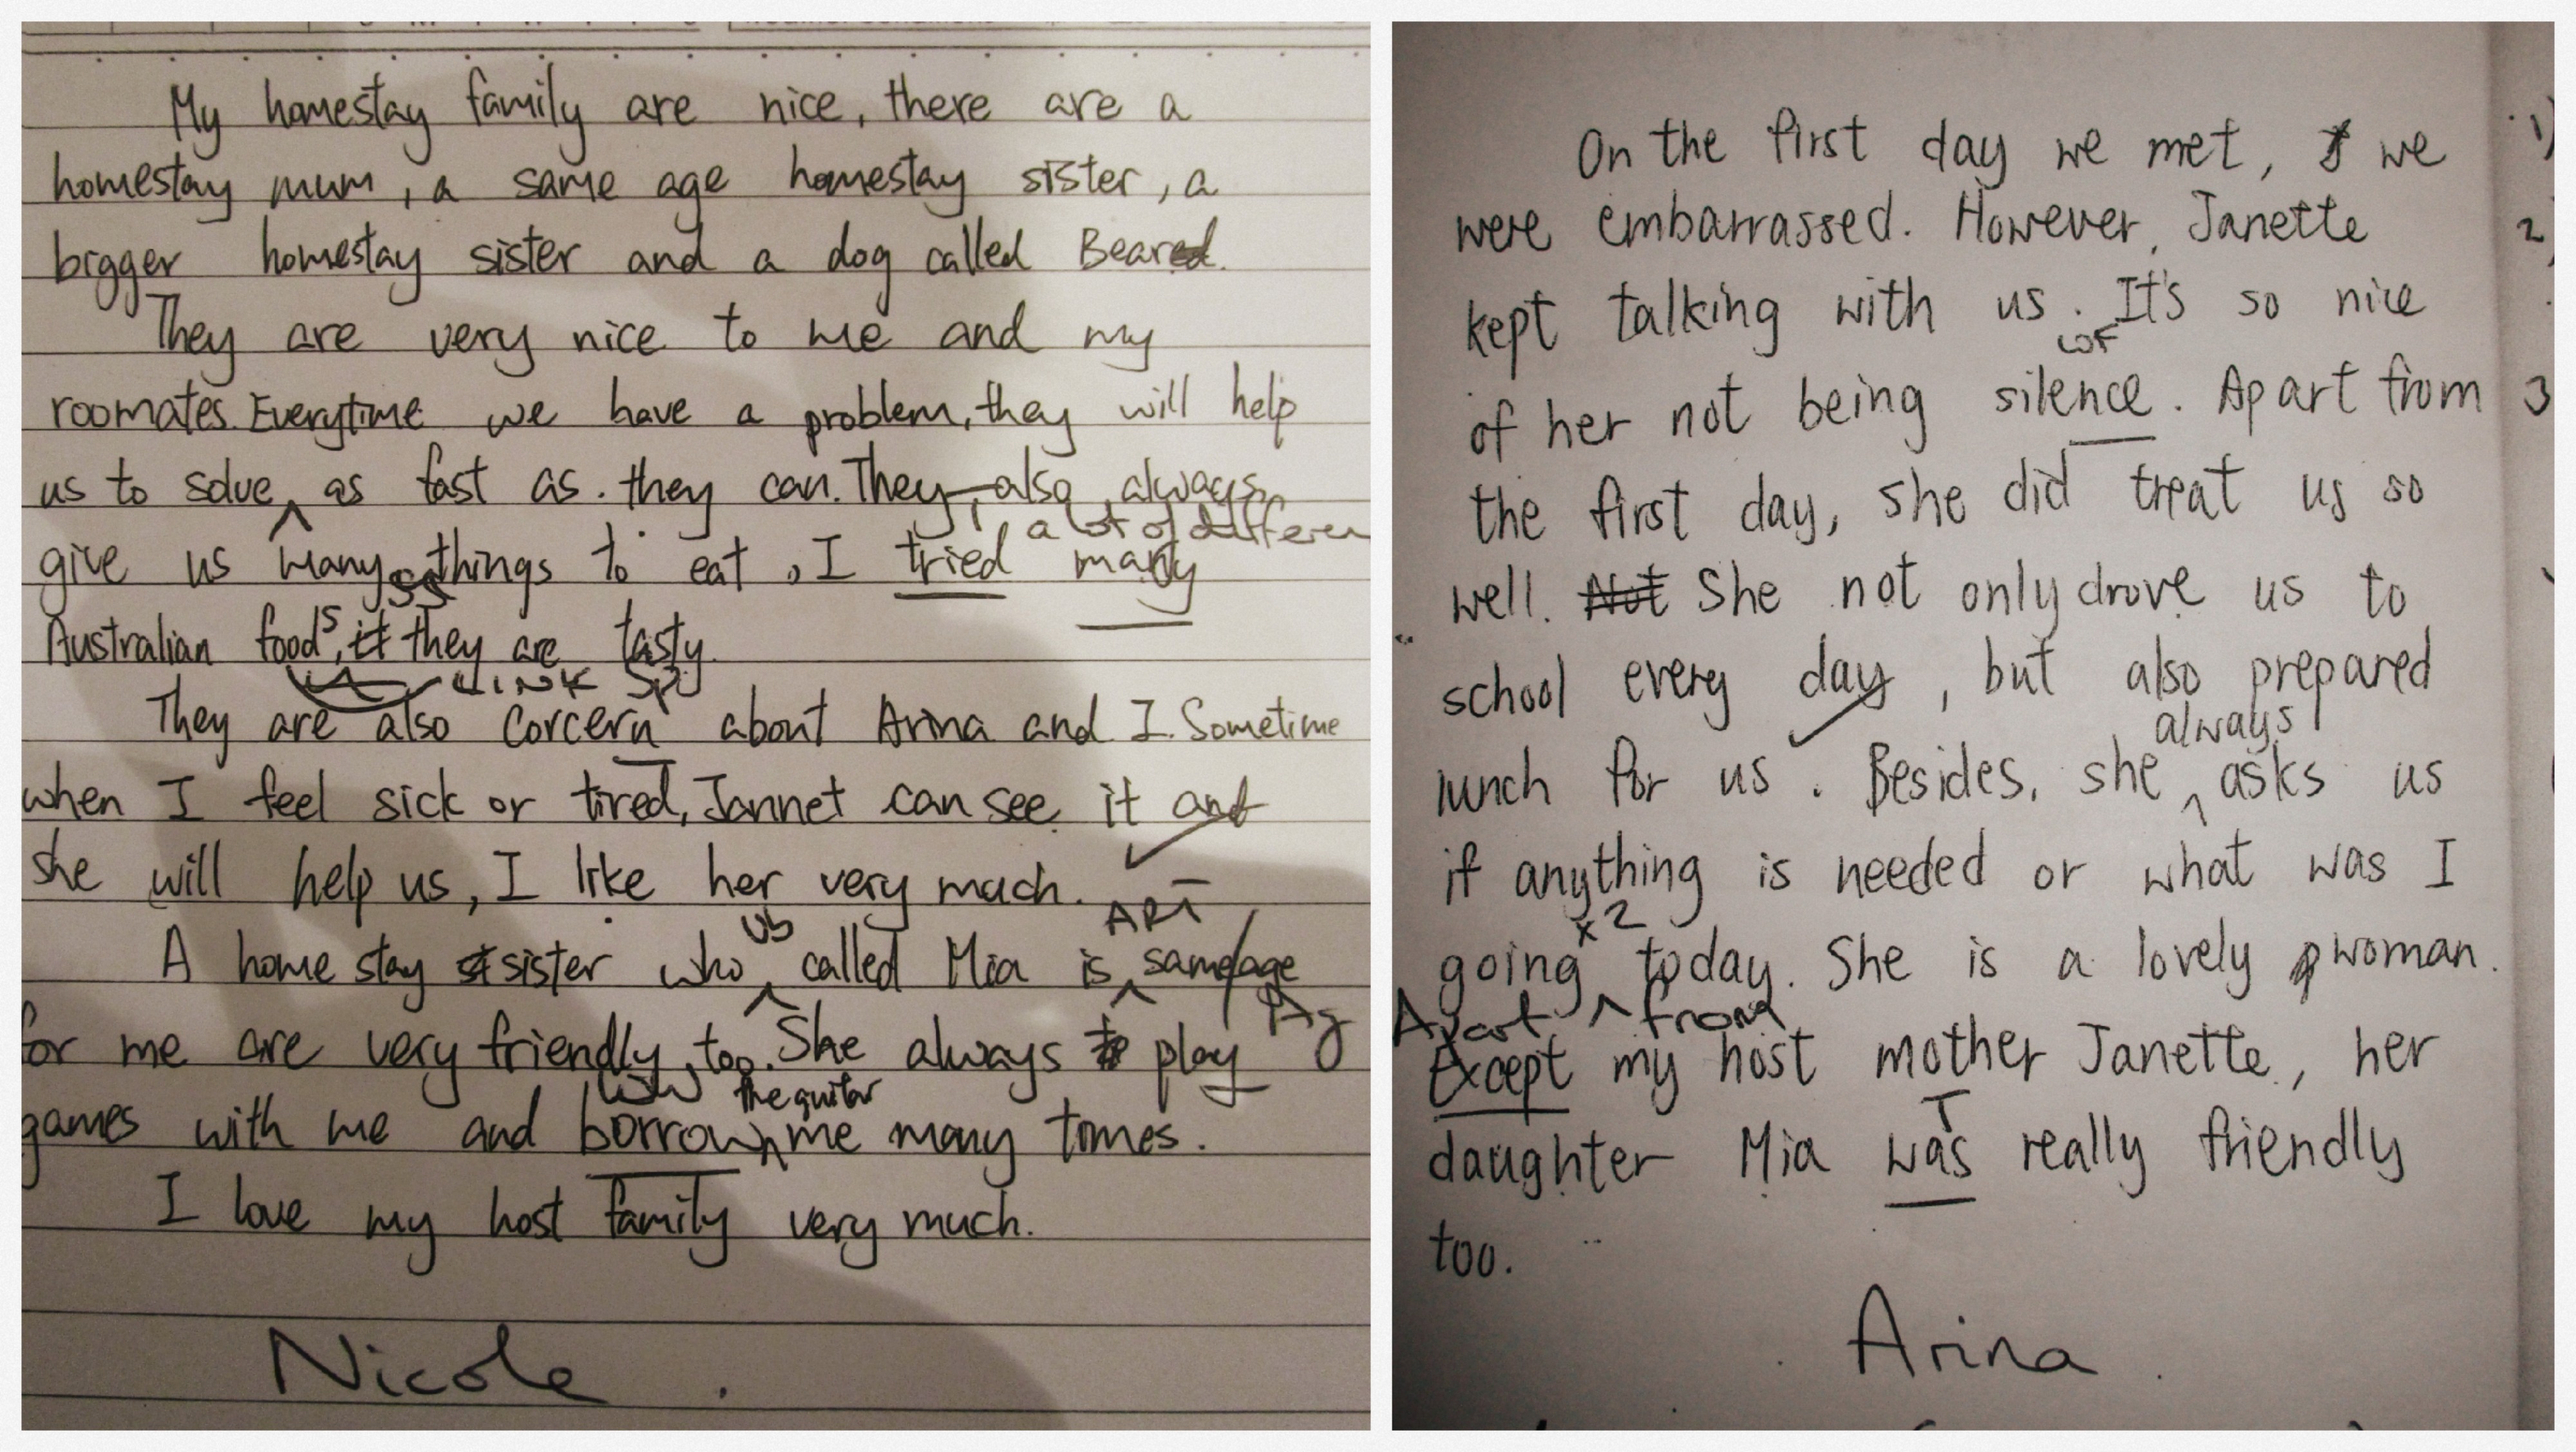 My homestay family are nice, there are a
homestay mum, a same age homestay sister, a
bigger homestay sister and a dog called Bear
They are very nice to me and my
roomates. Everytime we have a problem, they will help
us to solve as fast as they can. They also always
a lot of differen
give us many things to eat, I tried many
Australian foods, it they are tasty.
LINK SP
They are also corcern about Arina and I. Sometime
when I feel sick or tired, Jannet can see it and
she will help us, I like her very much.
Vb ART
A home stay sister who called Mia is same age
for me are very friendly too. She always to play Ag
WW the guitar
games with me and borrow me many times.
I love my host family very much.
Nicole
On the first day we met, we
were embarrassed. However, Janette
kept talking with us. It's so nice
WF
of her not being silence. Apart from
the first day, she did treat us so
well. Not She not only drove us to
school every day, but also prepared
always
lunch for us. Besides, she asks us
if anything is needed or what was I
x2
going today. She is a lovely woman.
Apart from
Except my host mother Janette, her
T
daughter Mia was really friendly
too.
Arina
1)
2)
3